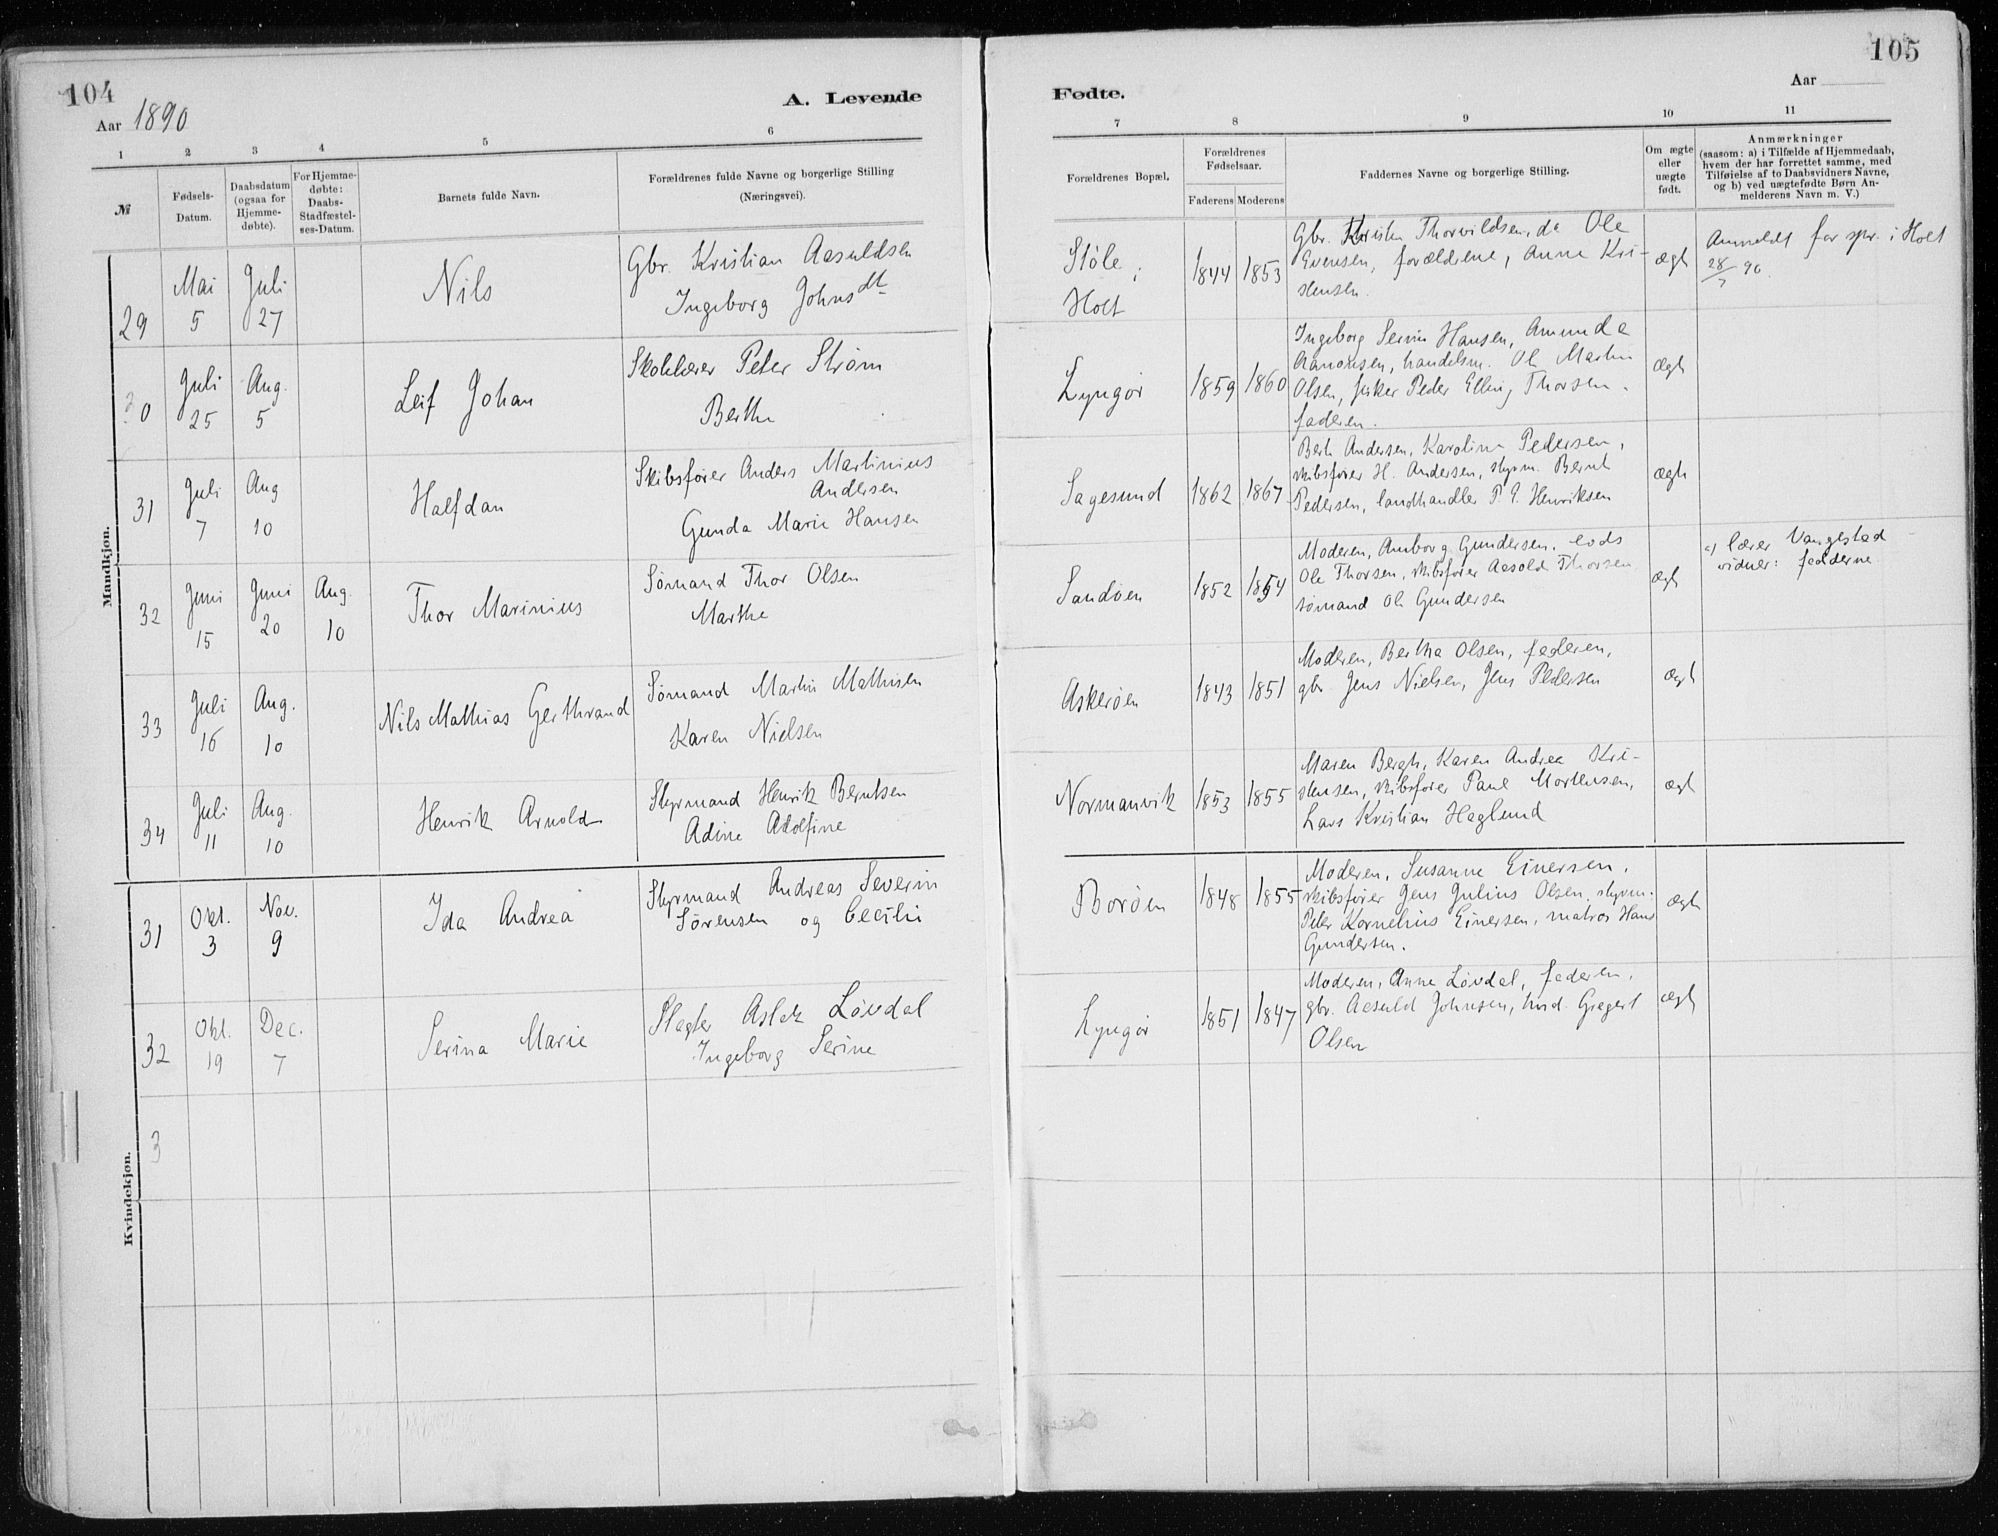 104
Aar 1890
A. Levende
1 2 3 4 5 6
№
Fødsels-
Datum.
Daabsdatum
(ogsaa for
Hjemme-
døbte).
For Hjemme-
døbte:
Daabs-
Stadfæstel-
ses-Datum.
Barnets fulde Navn.
Forældrenes fulde Navne og borgerlige Stilling
(Næringsvei).
Mandkjøn.
29
Mai
5
Juli
27
Nils
Gbr. Kristian Aasuldsen
Ingeborg Johnsdt
30
Juli
25
Aug.
5
Leif Johan
Skolelærer Peter Strøm
Berthe
31
Juli
7
Aug
10
Halfdan
Skibsfører Anders Martinius
Andersen
Gunda Marie Hansen
32
Juni
15
Juni
20
Aug.
10
Thor Marinius
Sømand Thor Olsen
Marthe
33
Juli
16
Aug.
10
Nils Mathias Gerthrand
Sømand Martin Mathisen
Karen Nielsen
34
Juli
11
Aug.
10
Henrik Arnold
Styrmand Henrik Berntsen
Adine Adolfine
Kvindekjøn.
31
Okt.
3
Nov.
9
Ida Andrea
Styrmand Andreas Severin
Sørensen og Cecilie
32
Okt.
19
Dec.
7
Serina Marie
Slagter Aslak Løvdal
Ingeborg Serine
3
105
Fødte.
Aar
7 8 9 10 11
Forældrenes Bopæl.
Forældrenes
Fødselsaar.
Faderens Moderens
Faddernes Navne og borgerlige Stilling.
Om ægte
eller
uægte
født.
Anmærkninger
(saasom: a) i Tilfælde af Hjemmedaab,
hvem der har forrettet samme, med
Tilføielse af to Daabsvidners Navne,
og b) ved uægtefødte Børn An-
melderens Navn m. V.)
Støle i
Holt
1844 1853
Gbr. Kristen Thorvildsen, do Ole
Evensen, forældrene, Anne Kri-
stensen.
ægt
Anmeldt for spr. i Holt
28/7 90.
Lyngør
1859 1860
Ingeborg Serine Hansen, Amunda
Aanonsen, handelsm. Ole Martin
Olsen, fisker Peder Elling Thorsen.
faderen.
ægt
Sagesund
1862 1867
Berte Andersen, Karoline Pedersen,
skibsfører H. Andersen, styrm. Bernt
Pedersen, landhandler P. E. Henriksen
ægte
Sandøen
1852 1854
Moderen, Amborg Gundersen, lods
Ole Thorsen, skibsfører Aasold Thorsen
sømand Ole Gundersen
ægt
a) lærer Vangestad
vidner: fadderne
Askerøen
1843 1851
Moderen, Bertha Olsen, faderen,
gbr. Jens Nielsen, Jens Pedersen
ægt
Normanvik
1853 1855
Maren Bergh, Karen Andrea Kri-
stensen, skibsfører Paul Mortensen,
Lars Kristian Haglund
ægt
Borøen
1848 1855
Moderen, Susanne Einersen,
skibsfører Jens Julius Olsen, styrm.
Peter Kornelius Einersen, matros Hans
Gundersen.
ægt
Lyngør
1851 1847
Moderen, Anne Løvdal, faderen,
gbr. Aasuld Johnsen, hmd. Gregert
Olsen
ægt